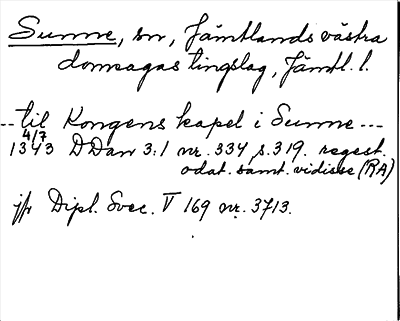 Sunne, sn, Jämtlands västra
domsagas tingslag, Jämtl. l.
--- til Kongens kapel i Sunne ---
4/7
1343 DDan 3:1 nr. 334, s. 319. regest.
odat. samt. vidisse (RA)
jfr Dipl. Svec. V 169 nr. 3713.